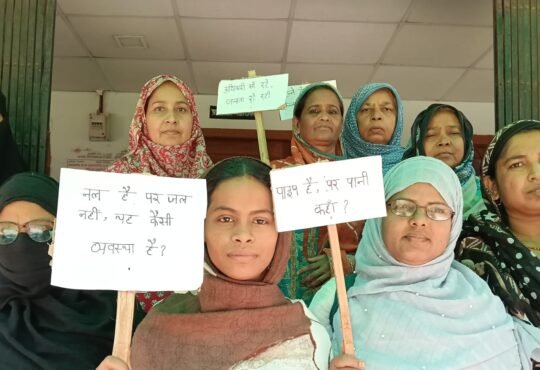 अधिकारी सो रहे,
जनता रो रही
नल है पर जल
नहीं, यह कैसी
व्यवस्था है?
पाइप है, पर पानी
कहाँ?